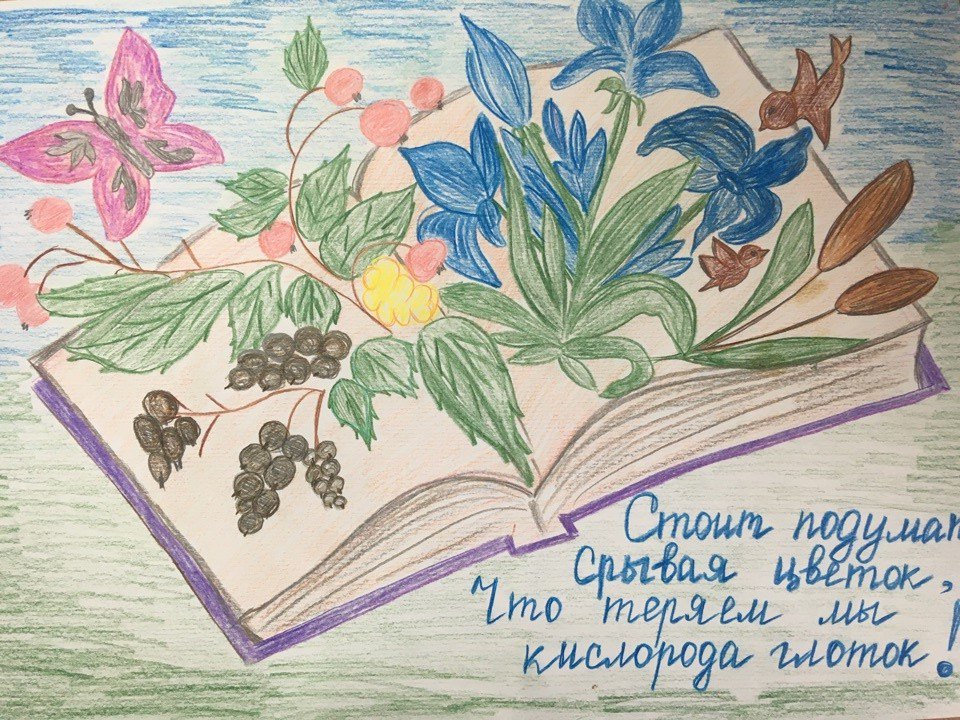 Стоит подумат
Срывая цветок,
Что теряем мы
кислорода глоток!